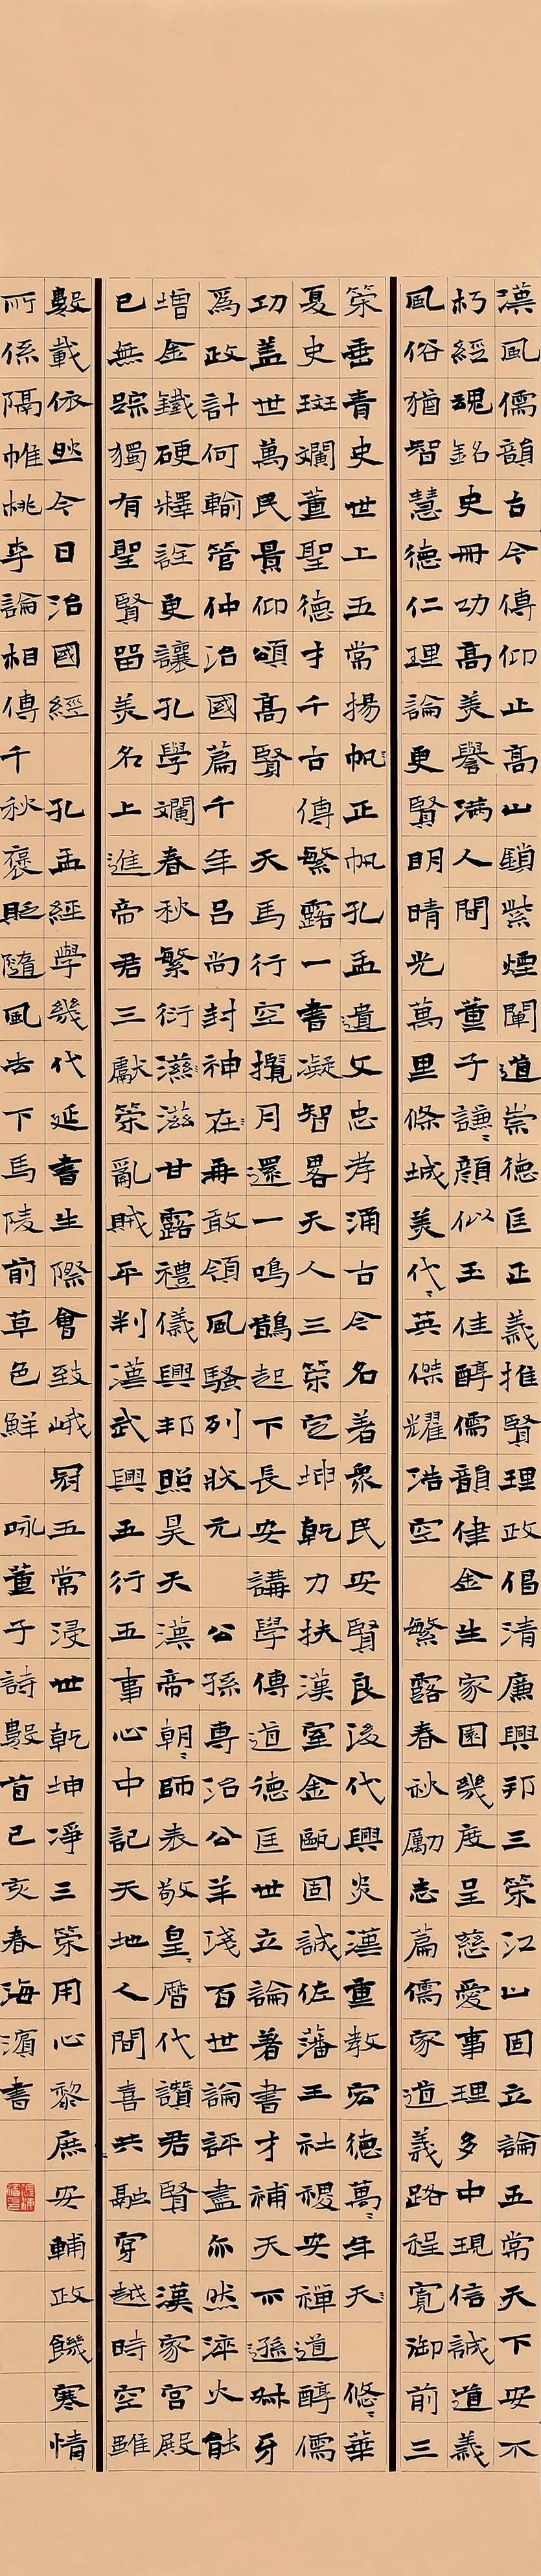 漢風儒韻古今傳仰止高山鎖紫煙闡道崇德匡正義推賢理政倡清廉興邦三策江山固立論五常天下安不
朽經魂銘史冊功高美譽滿人間 董子謙〻顏似玉佳醇儒韻律金生家園幾度呈慈愛事理多中現信誠道義
風俗猶智慧德仁理論更賢明晴光萬里條城美代〻英傑耀浩空 繁露春秋勵志篇儒家道義路程寬御前三
策垂青史世上五常揚帆〻正帆孔孟遺文忠孝涌古今名著衆民安賢良後代興炎漢重教宏德萬〻年天〻 悠〻華
夏史斑斕董聖德才千古傳繁露一書凝智畧天人三策定坤乾力扶漢室金甌固誠佐藩王社稷安禪道醇儒
功蓋世萬民景仰頌高賢 天馬行空攬月還一鳴鶴起下長安講學傳道德匡世立論著書才補天不遜牙
爲政計何輸管仲治國篇千年呂尚封神在〻再敢領風騷列狀元 公孫專治公羊淺百世論評盡亦然淬火能
增金鐵硬釋詮更讓孔學斕春秋繁衍濕〻滋甘露禮儀興邦照昊天漢帝朝〻師表敬皇〻曆代讚君賢 漢家宮殿
已無踪獨有聖賢留美名上進帝君三獻策亂賊平判漢武興五行五事心中記天地人間喜共融穿越時空雖
數載依然今日治國經 孔孟經學幾代延書生際會致峨冠五常浸世乾坤淨三策用心黎庶安輔政饑寒情
所係隔帷桃李論相傳千秋褒貶隨風去下馬陵前草色鮮 咏董子詩數首己亥春海濱書